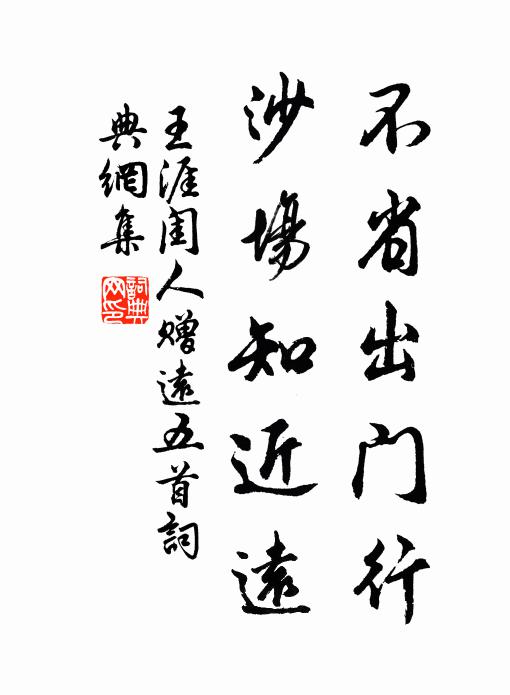 不省出门行
沙場知近遠
王涯闺人赠遠五首詞
典網集
詞典
网印